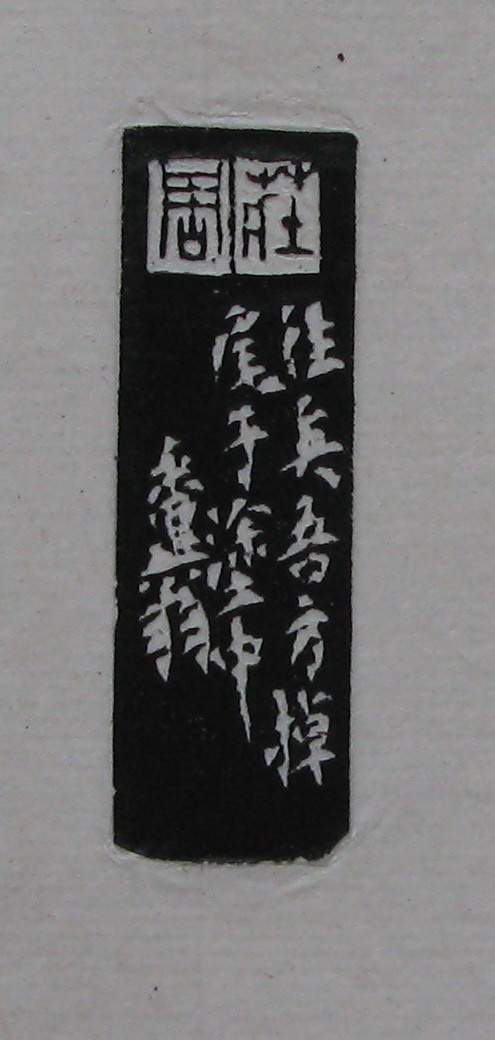 莊周
往矣吾方掉
尾于塗中
糞翁